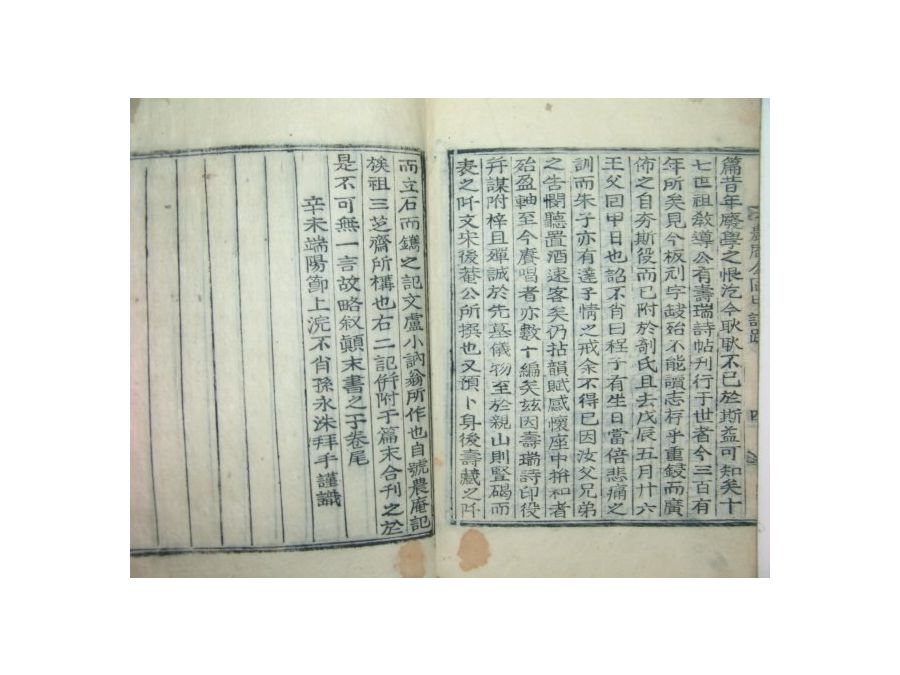 篇昔年廢學之恨汔今耿耿不已於斯益可知矣十
七世祖敎導公有壽瑞詩帖刊行于世者今三百有
年所矣見今板刓字缺殆不能讀志存乎重鋟而廣
佈之自夯斯役而已附於剞氏且去戊辰五月廿六
王父回甲日也詔不肖曰程子有生日當倍悲痛之
訓而朱子亦有達子情之戒余不得已因汝父兄弟
之告閔聽置酒速客矣仍拈韻賦感懷座中拚和者
殆盈軸至今賡唱者亦數十編矣玆因壽瑞詩印役
幷謀附梓且殫誠於先墓儀物至於親山則竪碣而
表之阡文宋後菴公所撰也又預卜身後壽藏之阡
而立石而鐫之記文盧小訥翁所作也自號農庵記
族祖三芝齋所構也右二記倂附于篇末合刊之於
是不可無一言故略叙顚末書之于卷尾
辛未端陽節上浣不肖孫永洙拜手謹識